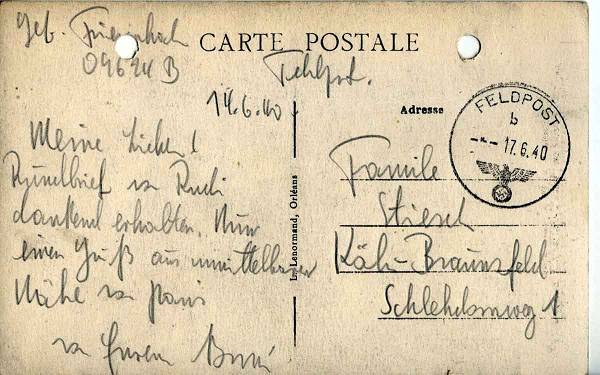 Gef.
09624 B
CARTE POSTALE
Feldpost.
14.6.40
Adresse
FELDPOST
b
17.6.40
Meine Lieben!
Rundbrief von Rudi
dankend erhalten. Nun
einen Gruß aus unmittelbarer
Nähe von Paris
von Eurem
L. Lenormand, Orléans
Familie
Köln-Braunsfeld
1